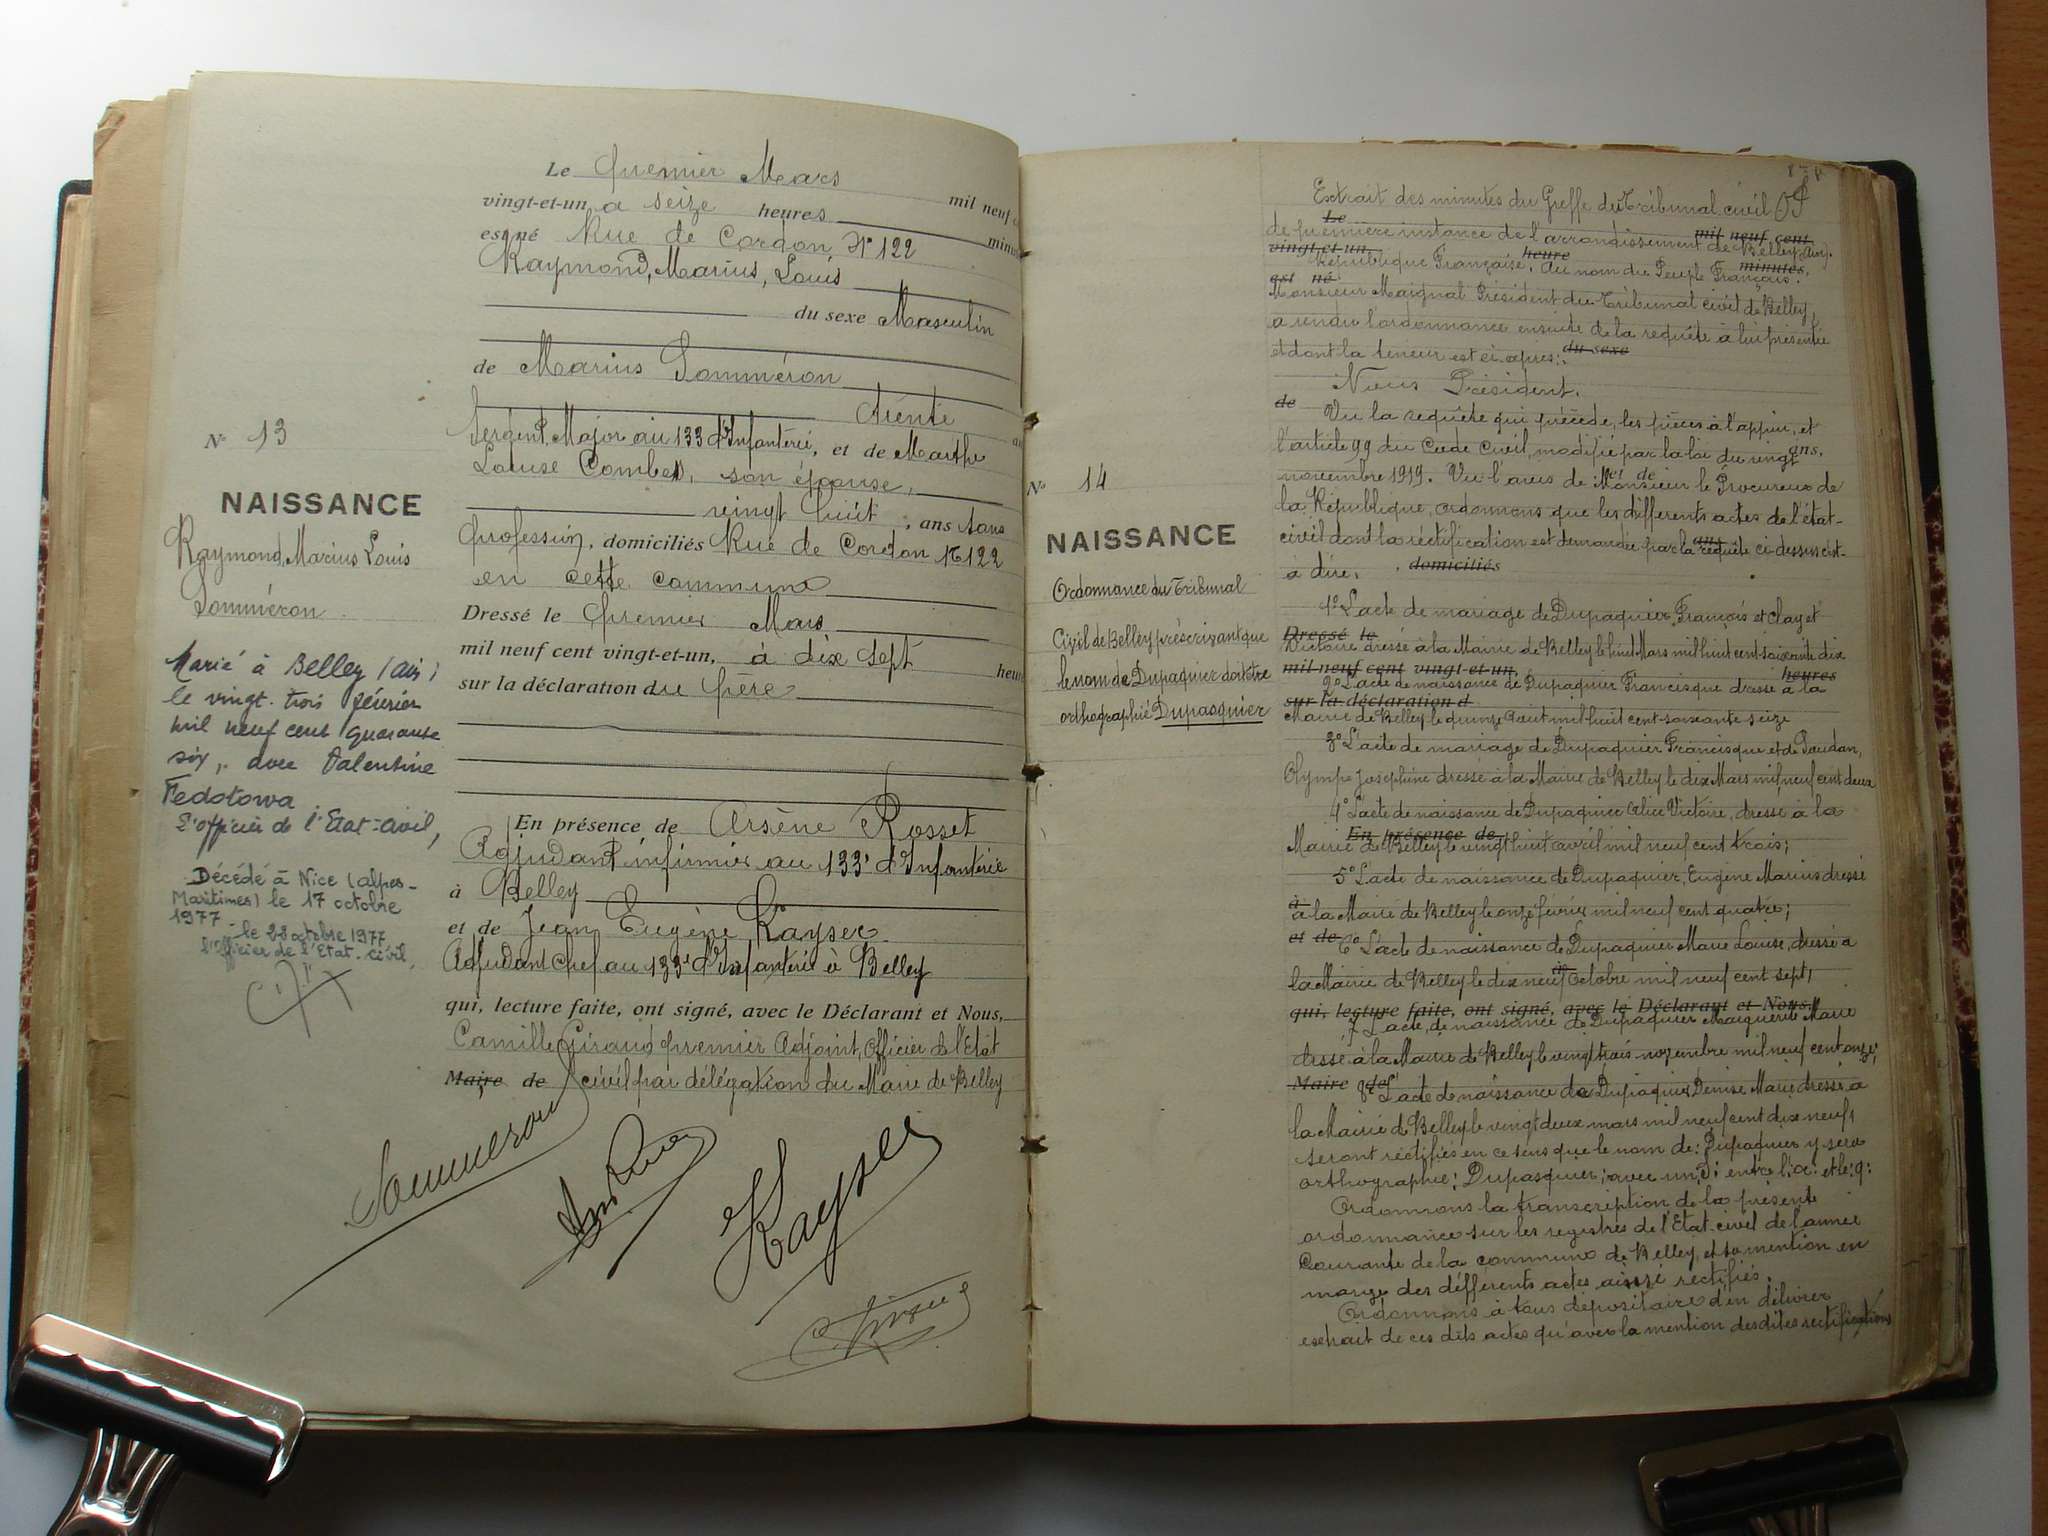 Le premier Mars mil neuf
vingt-et-un, a seize heures minu
est né Rue de Cordon N° 122
Raymond, Marius, Louis
du sexe Masculin
de Marius Sommeron
trente
Sergent Major au 133 d'Infanterie, et de Marthe
Louise Combes, son épouse,
vingt huit, ans sans
profession, domiciliés Rue de Cordon N° 122
en cette commune
Dressé le premier Mars
mil neuf cent vingt-et-un, à dix sept heur
sur la déclaration du père
En présence de Arsène Rosset
Adjudant infirmier au 133e d'Infanterie
à Belley
et de Jean Eugène Kayser
Adjudant Chef au 133e d'Infanterie à Belley
qui, lecture faite, ont signé, avec le Déclarant et Nous,
Camille Giraud premier Adjoint, Officier de l'Etat
Maire de civil par délégation du Maire de Belley
Sommeron
Kayser
Giraud
N° 13
NAISSANCE
Raymond, Marius Louis
Sommeron
Marié à Belley (ain)
le vingt-trois février
mil neuf cent quarante
six, avec Valentine
Fedotowa
L'officier de l'Etat-civil,
Décédé à Nice (alpes-
Maritimes) le 17 octobre
1977
- le 28 octobre 1977
l'Officier de l'Etat-civil,
N° 14
NAISSANCE
Ordonnance du Tribunal
Civil de Belley prescrivant que
le nom de Dupaquier doit être
orthographié Dupasquier
Extrait des minutes du Greffe du Tribunal civil
Le
de première instance de l'arrondissement de Belley (Ain).
mil neuf cent
vingt-et-un, heure
République Française. Au nom du Peuple Français.
minutes
est né
Monsieur Maignal Président du Tribunal civil de Belley,
a rendu l'ordonnance ensuite de la requête à lui présentée
et dont la teneur est ci-après:
du sexe
Nous Président.
de
Vu la requête qui précède, les pièces à l'appui, et
l'article 99 du Code Civil, modifié par la loi du vingt
ans,
novembre 1919. Vu l'avis de Monsieur le Procureur de
et de
la République, ordonnons que les différents actes de l'état-
civil dont la rectification est demandée par la requête ci-dessus c'est-
ans
à dire,
domiciliés
1° L'acte de mariage de Dupaquier François et Clayet
Dressé le
Victoire dressé à la Mairie de Belley le huit Mars mil huit cent soixante dix
mil neuf cent vingt-et-un, heures
2° L'acte de naissance de Dupaquier Francisque dressé à la
sur la déclaration d
Mairie de Belley le quinze Août mil huit cent soixante seize
3° L'acte de mariage de Dupaquier Francisque et de Gaudan,
Olympe Joséphine dressé à la Mairie de Belley le dix Mars mil neuf cent deux
4° L'acte de naissance de Dupaquier Alice Victoire, dressé à la
En présence de
Mairie de Belley le vingt huit avril mil neuf cent trois;
5° L'acte de naissance de Dupaquier, Eugène Marius dressé
à
à la Mairie de Belley le onze février mil neuf cent quatre;
et de
6° L'acte de naissance de Dupaquier Marie Louise, dressé à
la Mairie de Belley le dix neuf Octobre mil neuf cent sept,
qui, lecture faite, ont signé, avec le Déclarant et Nous,
7° L'acte, de naissance de Dupaquier Marguerite Marie
dressé à la Mairie de Belley le vingt trois novembre mil neuf cent onze;
Maire de
8° L'acte de naissance de Dupaquier, Denise Marie dressé à
la Mairie de Belley le vingt deux mars mil neuf cent dix neuf,
seront rectifiés en ce sens que le nom de: Dupaquier y sera
orthographié: Dupasquier; avec un: s: entre l': a: et le: q:
Ordonnons la transcription de la présente
ordonnance sur les registres de l'Etat-civil de l'année
Courante de la commune de Belley, et sa mention en
marge des différents actes ainsi rectifiés.
Ordonnons à tous dépositaires d'en délivrer
extrait de ces dits actes qu'avec la mention desdites rectifications